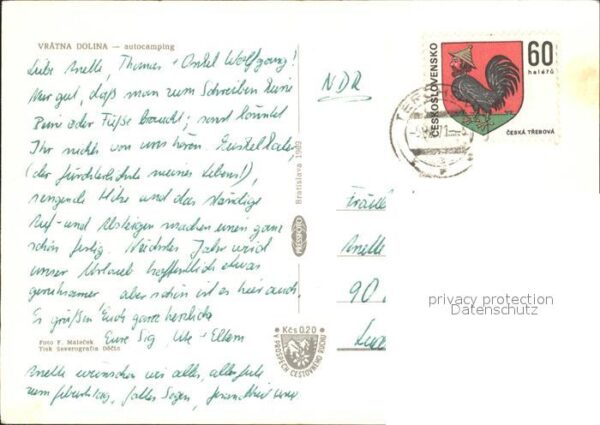 VRÁTNA DOLINA — autocamping
Liebe Anelle, Thomas + Onkel Wolfgang!
Nur gut, daß man zum Schreiben keine
Beine oder Füße braucht; sonst könntet
Ihr nichts von uns hören
(der fürchterlichste meines Lebens!),
sengende Hitze und das ständige
Auf- und Absteigen machen einen ganz
schön fertig. Nächstes Jahr wird
unser Urlaub hoffentlich etwas
geruhsamer. aber schön ist es hier auch.
Es grüßen Euch ganz herzlich
Eure Sig, Ute + Eltern
Foto F. Maleček
Tisk Severografia Děčín
Anelle wünschen wir alles, alles Gute
zum Geburtstag, Gottes Segen,
Bratislava
PRESSFOTO
Kčs 0.20
V PROSPĚCH CESTOVNÉHO RUCHU
NDR
ČESKOSLOVENSKO
60
haléřů
ČESKÁ TŘEBOVÁ
Anelle
90
privacy protection
Datenschutz